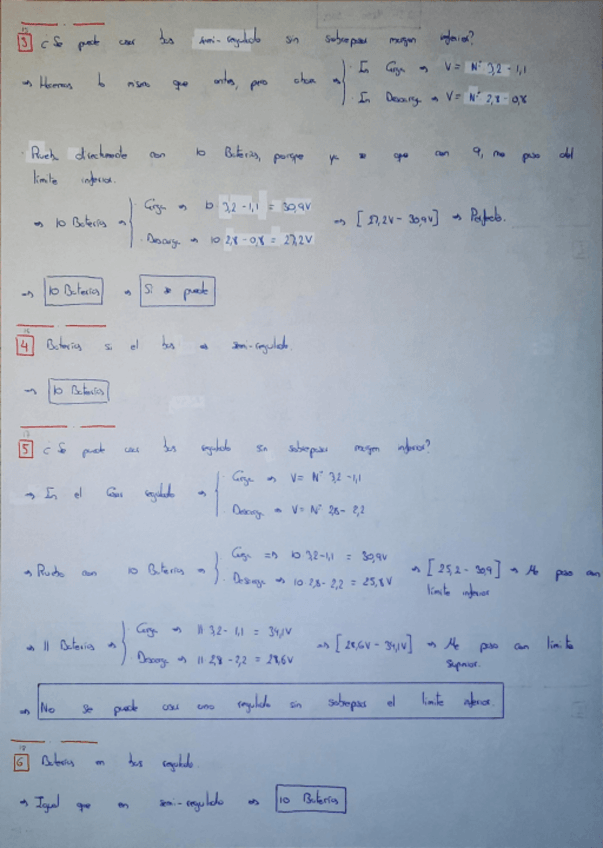 15
3 ¿Se puede usar bus semi-regulado sin sobrepasar margen inferior?
⇒ Hacemos lo mismo que antes, pero ahora ⇒ { · In Carga ⇒ V = Nº 3,2 - 1,1
· In Descarga ⇒ V = Nº 2,8 - 0,8
· Pruebo directamente con 10 Baterías, porque ya se que con 9, me paso del
límite inferior.
⇒ 10 Baterías ⇒ { · Carga ⇒ 10 3,2 - 1,1 = 30,9V
· Descarga ⇒ 10 2,8 - 0,8 = 27,2V
⇒ [27,2V - 30,9V] ⇒ Perfecto.
⇒ 10 Baterías ⇒ Si se puede
16
4 Baterías si el bus es semi-regulado.
⇒ 10 Baterías
17
5 ¿Se puede usar bus regulado sin sobrepasar margen inferior?
⇒ In el regulado ⇒ { · Carga ⇒ V = Nº 3,2 - 1,1
· Descarga ⇒ V = Nº 2,8 - 2,2
⇒ Pruebo con 10 Baterías ⇒ { · Carga ⇒ 10 3,2 - 1,1 = 30,9V
· Descarga ⇒ 10 2,8 - 2,2 = 25,8V
⇒ [25,2 - 30,9] ⇒ Me paso con
límite inferior
⇒ 11 Baterías ⇒ { · Carga ⇒ 11 3,2 - 1,1 = 34,1V
· Descarga ⇒ 11 2,8 - 2,2 = 28,6V
⇒ [28,6V - 34,1V] ⇒ Me paso con límite
superior.
⇒ No se puede usar uno regulado sin sobrepasar el límite inferior.
18
6 Baterías en bus regulado.
⇒ Igual que en semi-regulado ⇒ 10 Baterías